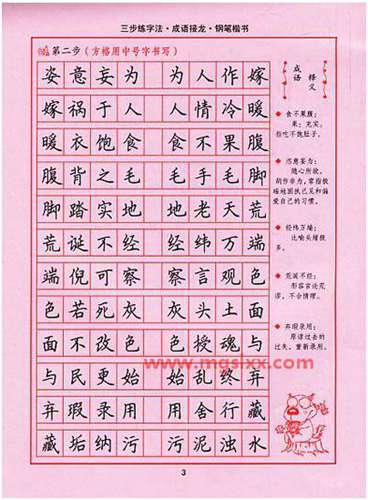 三步练字法·成语接龙·钢笔楷书
第二步（方格用中号字书写）
姿意妄为 为人作嫁
嫁祸于人 人情冷暖
暖衣饱食 食不果腹
腹背之毛 毛手毛脚
脚踏实地 地老天荒
荒诞不经 经纬万端
端倪可察 察言观色
色若死灰 灰头土面
面不改色 色授魂与
与民更始 始乱终弃
弃瑕录用 用舍行藏
藏垢纳污 污泥浊水
成语释义
食不果腹：
果：充实。
指吃不饱肚子。
恣意妄为：
随心所欲，
胡作非为，常指放
经纬万端：
比喻头绪很
多。
荒诞不经：
形容言论荒
谬，不合情理。
弃瑕录用：
原谅过去的
过失，重新录用。
www.mgslxx.com
3